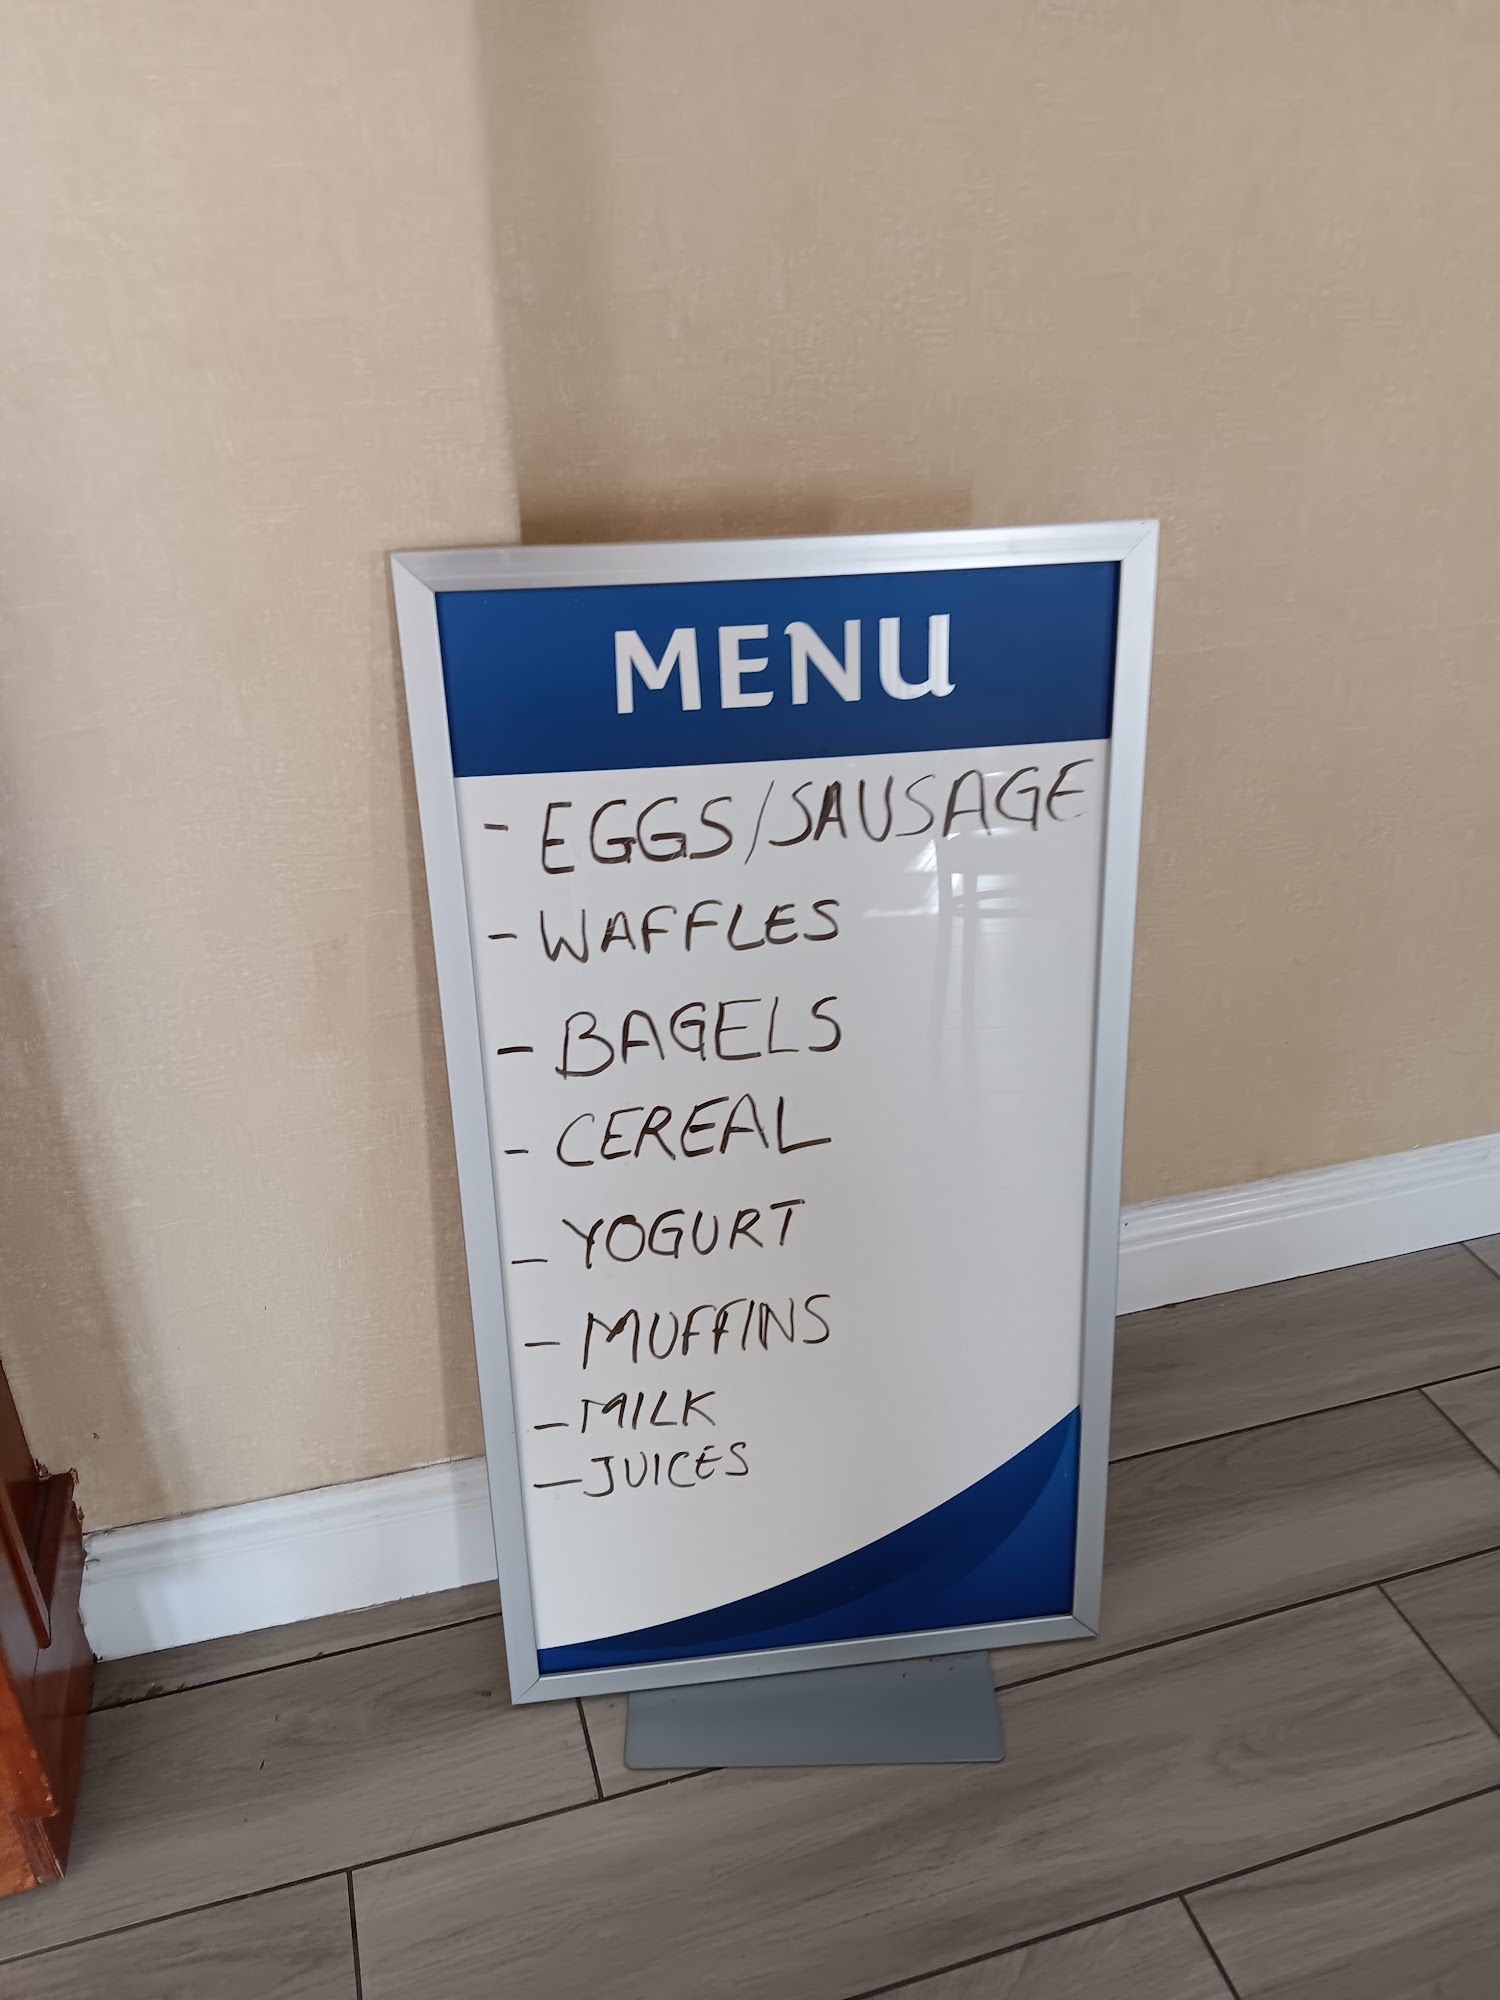 MENU
- EGGS/SAUSAGE
- WAFFLES
- BAGELS
- CEREAL
- YOGURT
- MUFFINS
- MILK
- JUICES